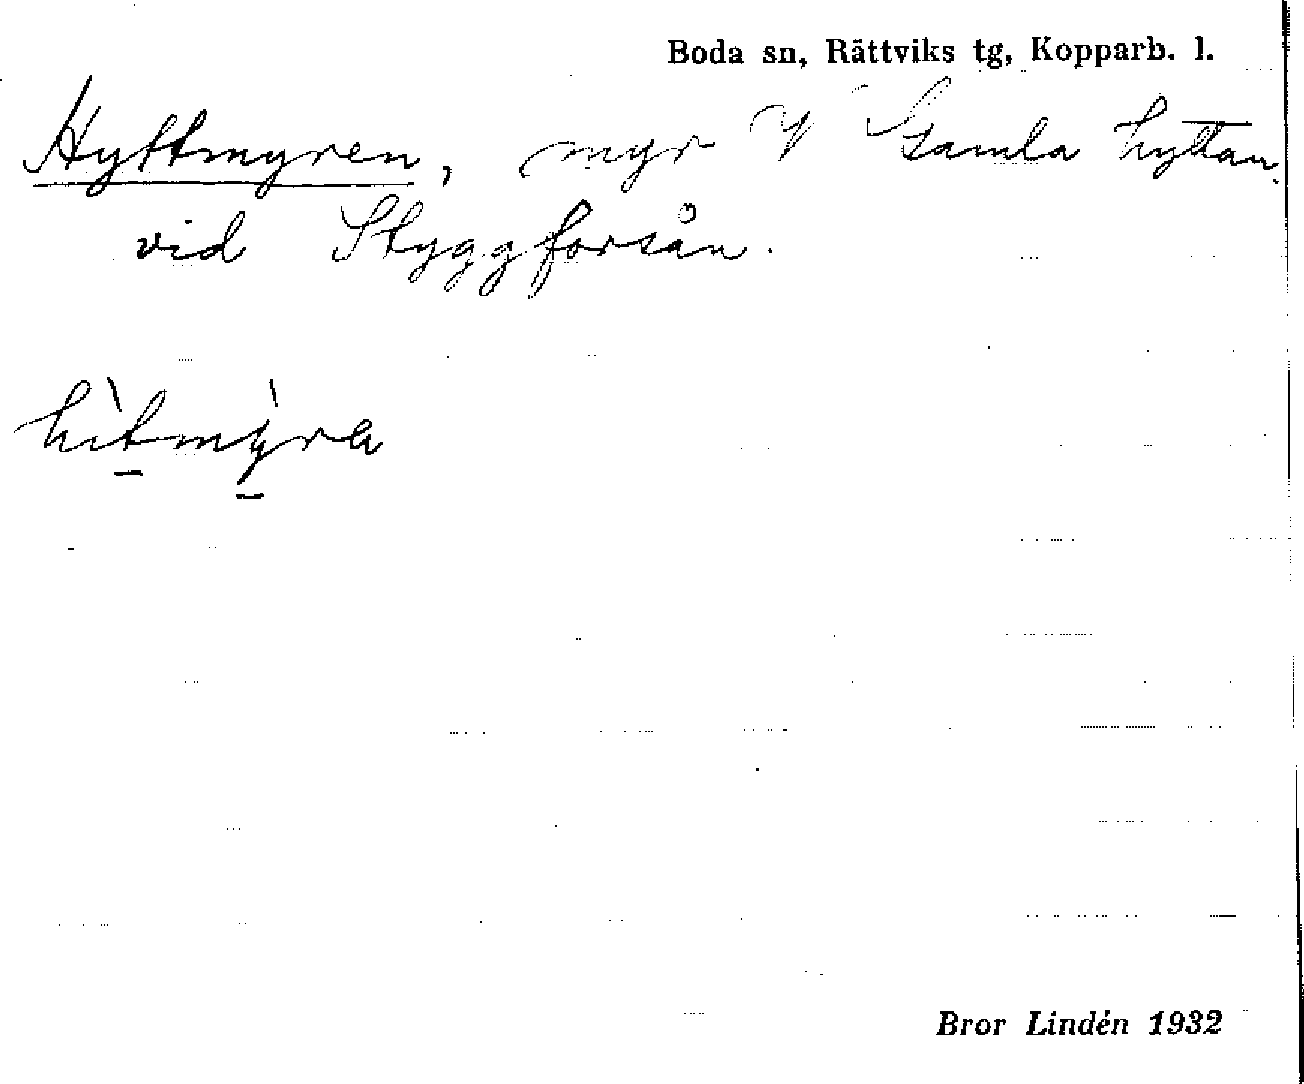 Boda sn, Rättviks tg, Kopparb. l.
Hyttmyren, myr V Gamla hyttan
vid Styggforsån.
hìtmỳra
Bror Lindén 1932